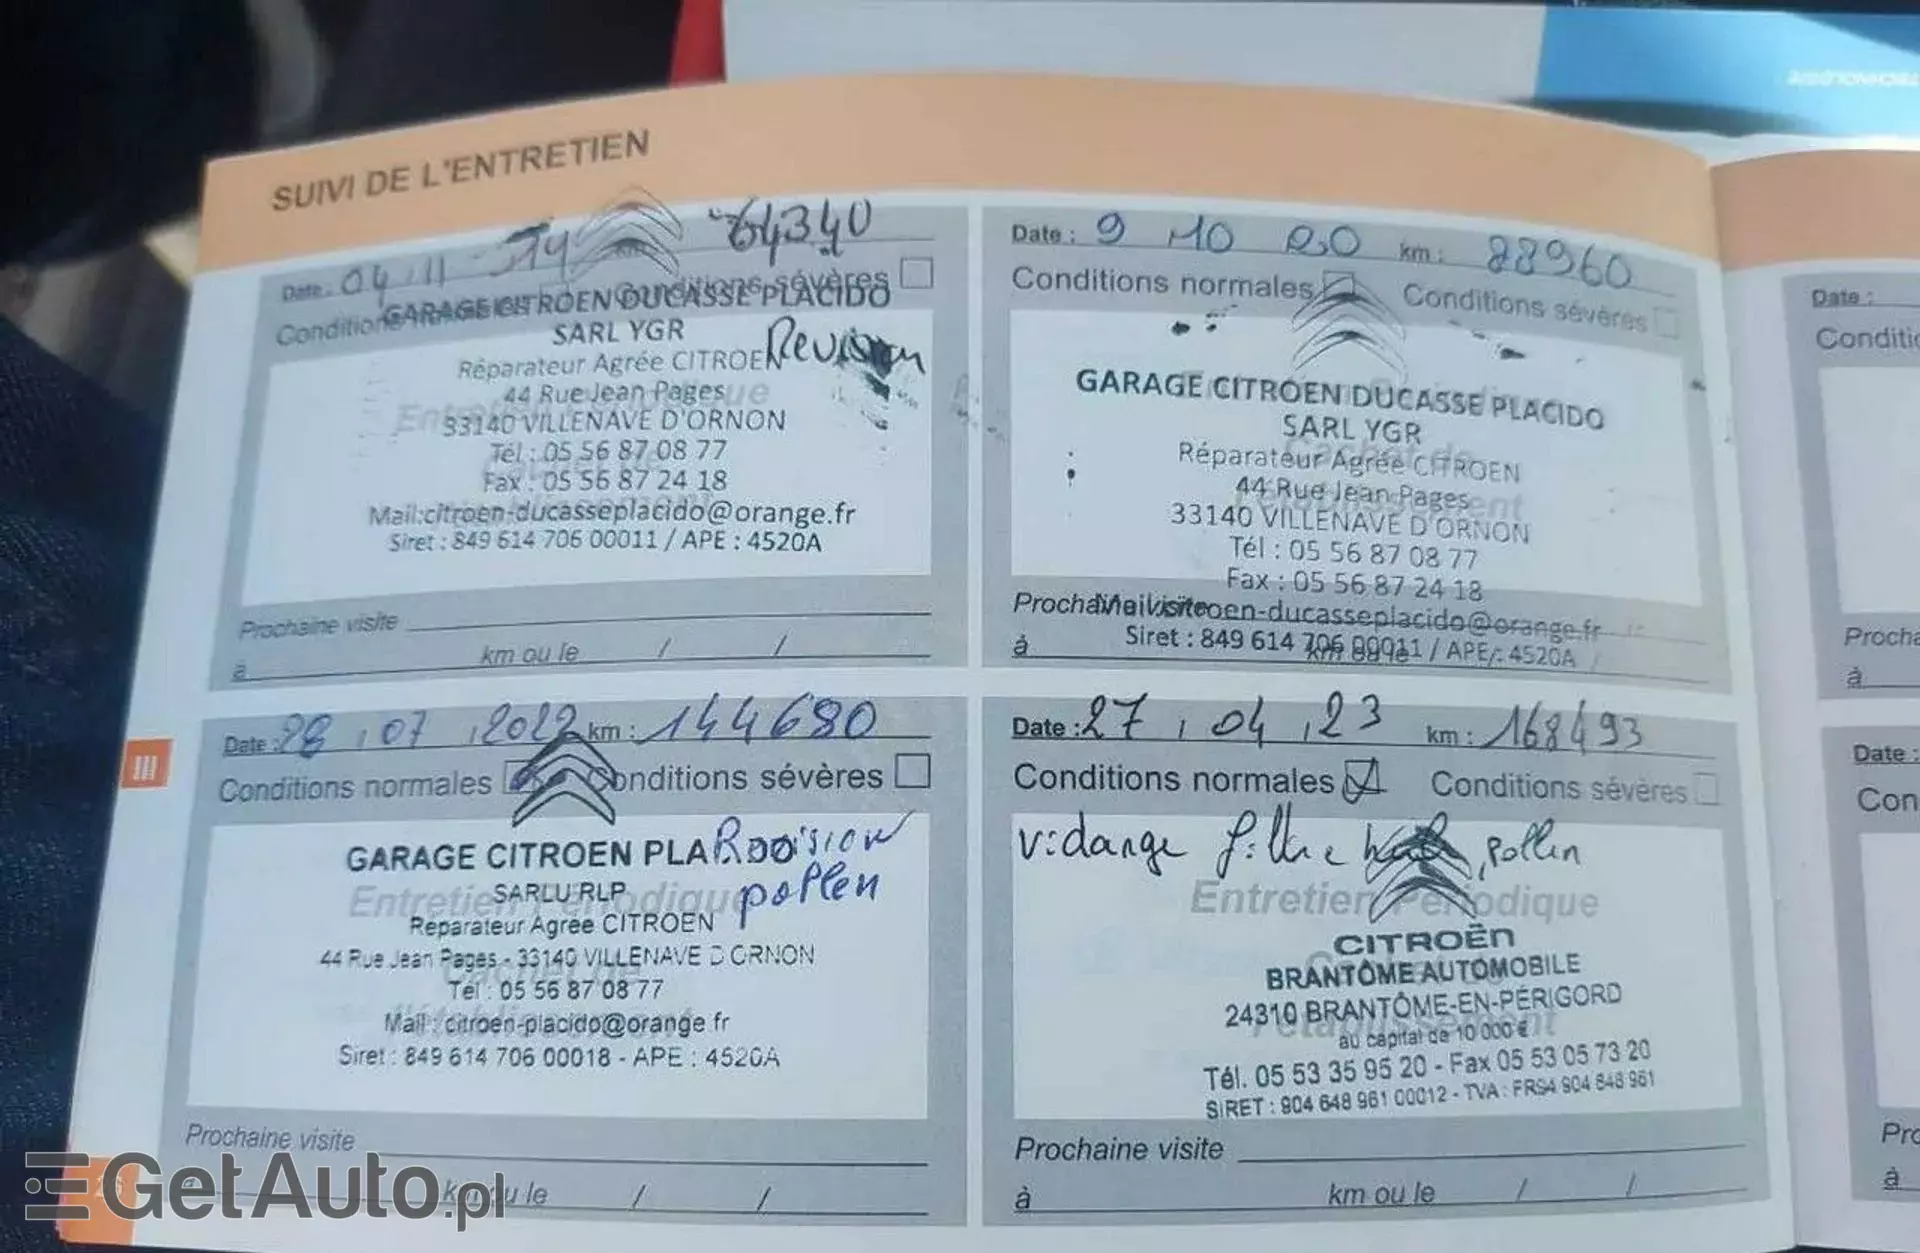 SUIVI DE L'ENTRETIEN
Date : 04 11 19 64340
Conditions sévères
GARAGE CITROEN DUCASSE PLACIDO
SARL YGR
Revision
Réparateur Agrée CITROEN
44 Rue Jean Pages
33140 VILLENAVE D'ORNON
Tél : 05 56 87 08 77
Fax : 05 56 87 24 18
Mail:citroen-ducasseplacido@orange.fr
Siret : 849 614 706 00011 / APE : 4520A
Prochaine visite
à km ou le / /
Date : 9 10 20 km : 88960
Conditions normales Conditions sévères
GARAGE CITROEN DUCASSE PLACIDO
SARL YGR
Réparateur Agrée CITROEN
44 Rue Jean Pages
33140 VILLENAVE D'ORNON
Tél : 05 56 87 08 77
Fax : 05 56 87 24 18
Prochaine visite
Mail:citroen-ducasseplacido@orange.fr
à km ou le
Siret : 849 614 706 00011 / APE : 4520A
III
Date : 28 , 07 , 2022 km : 144680
Conditions normales Conditions sévères
GARAGE CITROEN PLA
pollen
SARLU RLP
Entretien Périodique
Réparateur Agrée CITROEN
44 Rue Jean Pages - 33140 VILLENAVE D ORNON
Tél : 05 56 87 08 77
Mail : citroen-placido@orange.fr
Siret : 849 614 706 00018 - APE : 4520A
Prochaine visite
à km ou le / /
Date : 27 , 04 , 23 km : 168493
Conditions normales Conditions sévères
Vidange filtre , pollen
Entretien Périodique
CITROËN
BRANTÔME AUTOMOBILE
24310 BRANTÔME-EN-PÉRIGORD
au capital de 10 000 €
Tél. 05 53 35 95 20 - Fax 05 53 05 73 20
SIRET : 904 648 961 00012 - TVA : FR94 904 648 961
Prochaine visite
à km ou le / /
Date :
Conditio
Procha
à
Date :
Con
Pro
à
GetAuto.pl